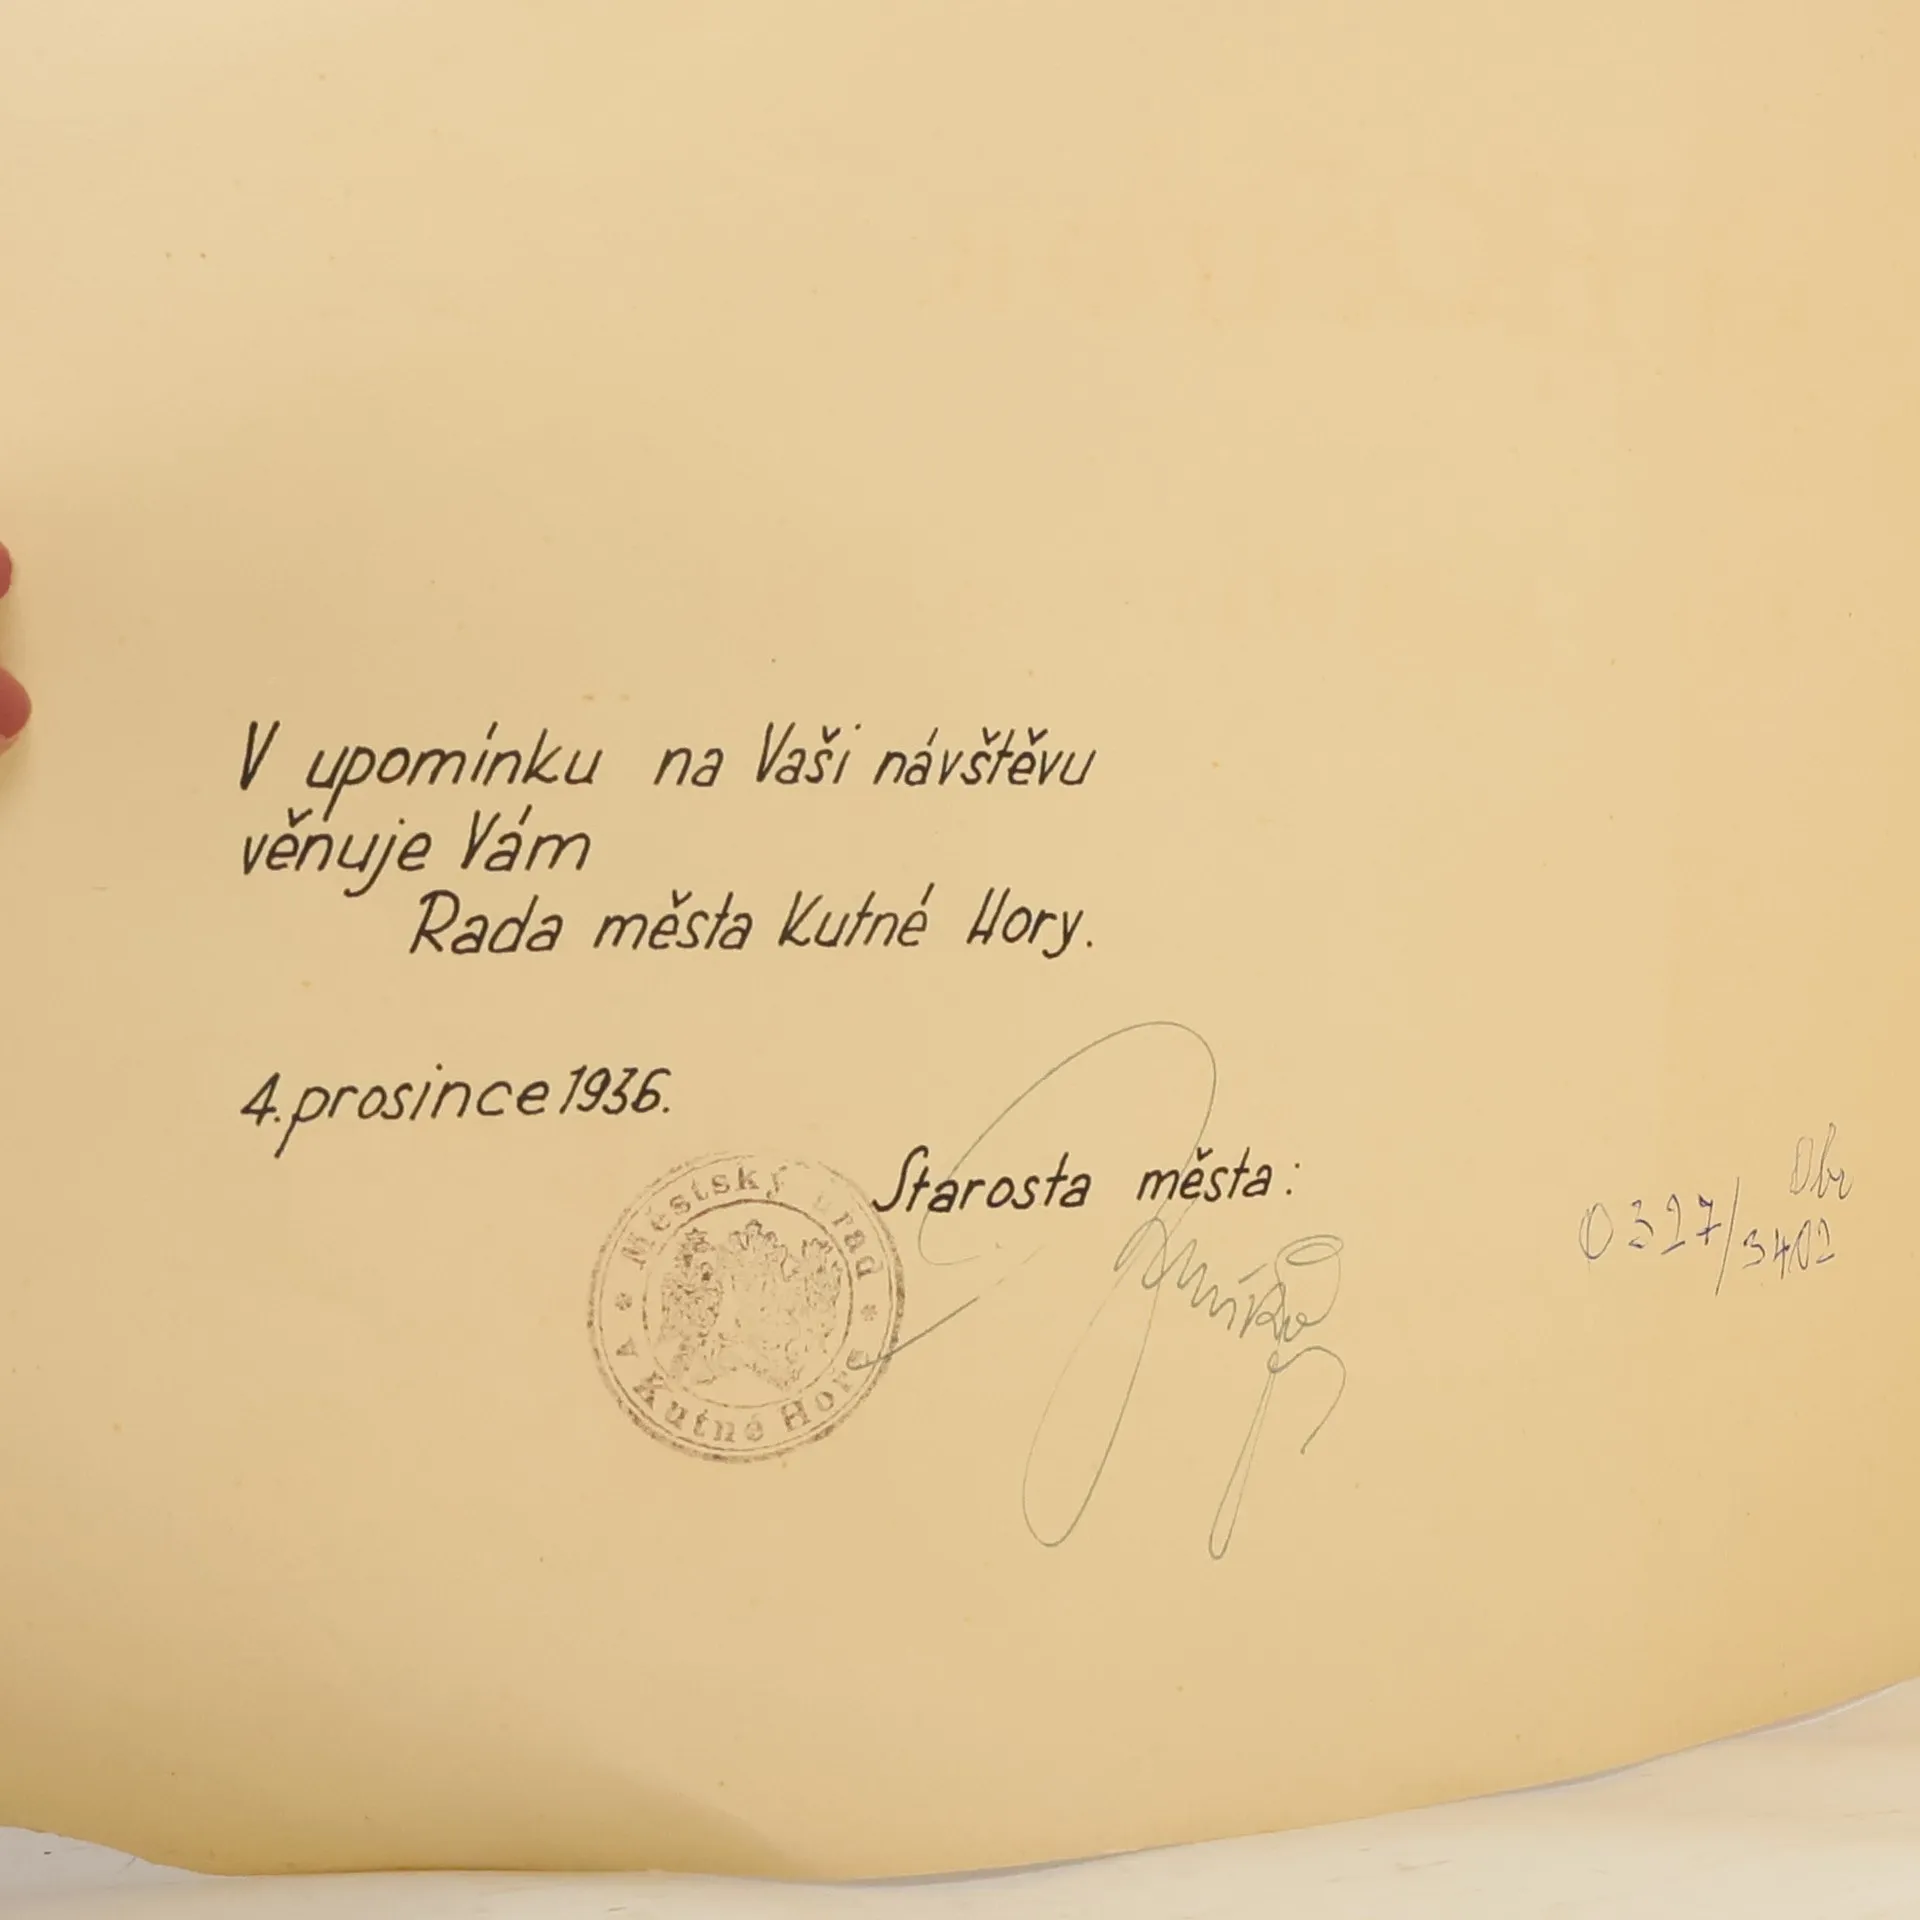 V upomínku na Vaši návštěvu
věnuje Vám
Rada města Kutné Hory.
4. prosince 1936.
Starosta města:
Městský úřad
v Kutné Hoře
Obr
0327/3402